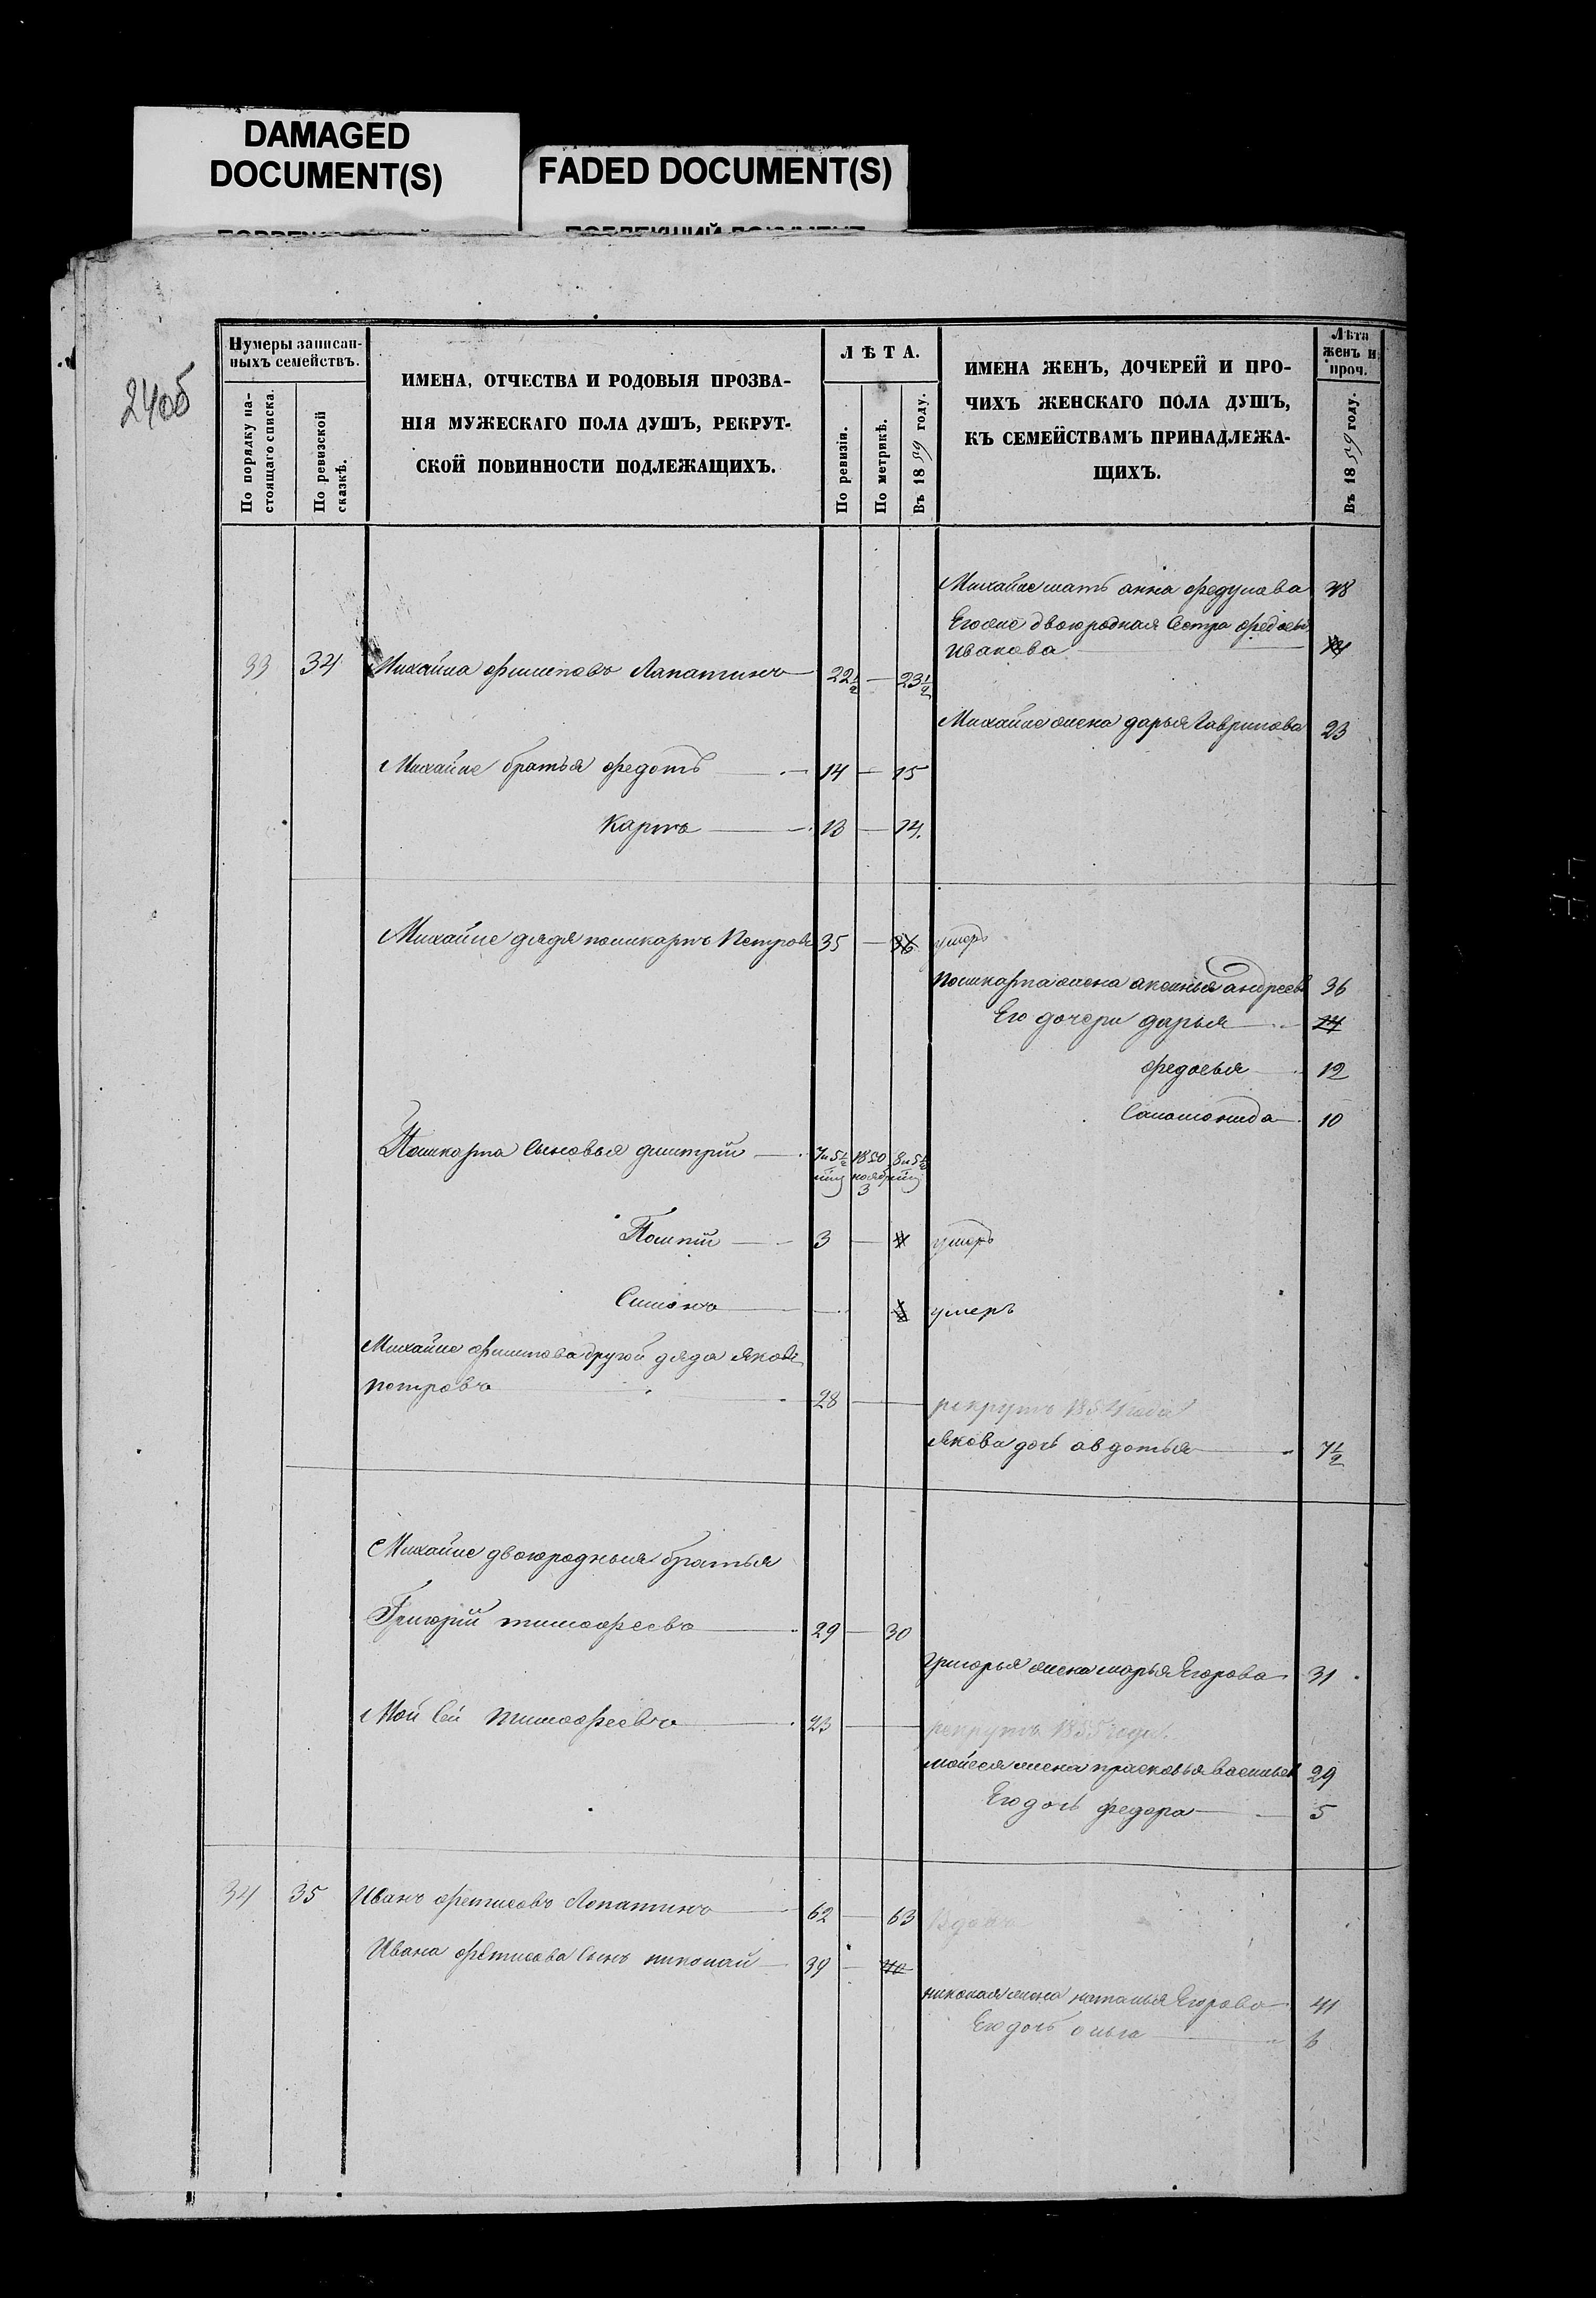 DAMAGED
DOCUMENT(S)
FADED DOCUMENT(S)
240б
Нумеры записан-
ныхъ семействъ.
По порядку на-
стоящаго списка.
По ревизской
сказкѣ.
ИМЕНА, ОТЧЕСТВА И РОДОВЫЯ ПРОЗВА-
НІЯ МУЖЕСКАГО ПОЛА ДУШЪ, РЕКРУТ-
СКОЙ ПОВИННОСТИ ПОДЛЕЖАЩИХЪ.
ЛѢТА.
По ревизіи.
По метрикѣ.
Въ 1859 году.
ИМЕНА ЖЕНЪ, ДОЧЕРЕЙ И ПРО-
ЧИХЪ ЖЕНСКАГО ПОЛА ДУШЪ,
КЪ СЕМЕЙСТВАМЪ ПРИНАДЛЕЖА-
ЩИХЪ.
Лѣта
женъ и
проч.
Въ 1859 году.
Михайле мать анна
Его же двоюродная Сестра
Ивакова
33 34 Михайла Лапатинъ 22½ — 23½
Михайле жена дарья Гаврилова 23
Михайле братья федотъ — 14 — 15
Карпъ — 13 — 14.
Михайле дядя поликарпъ Петровъ 35 — 36 умеръ
поликарпа жена аксинья андреева 36
Его дочери дарья — 14
федосья — 12
Саломонида — 10
Поликарпа Сыновья дмитрій — 7 и 5½ 1850 8 и 5½
ноября
3
3 — 4 умеръ
Симонъ — умеръ
Михайле филипова другой дядя яковъ
петровъ — 28 — рекрутъ 1854 года
якова дочь авдотья — 7½
Михайле двоюродныя братья
Григорій тимофеевъ — 29 — 30
Григорья жена марья Егорова 31
Мойсей тимофеевъ — 23 — рекрутъ 1855 года.
мойсея жена прасковья васильев 29
Его дочь федора — 5
34 35 Иванъ фетисовъ Лопатинъ 62 — 63 вдовъ
Ивана фетисова Сынъ николай — 39 — 40
николая жена наталья Егорова 41
Его дочь ольга — 6